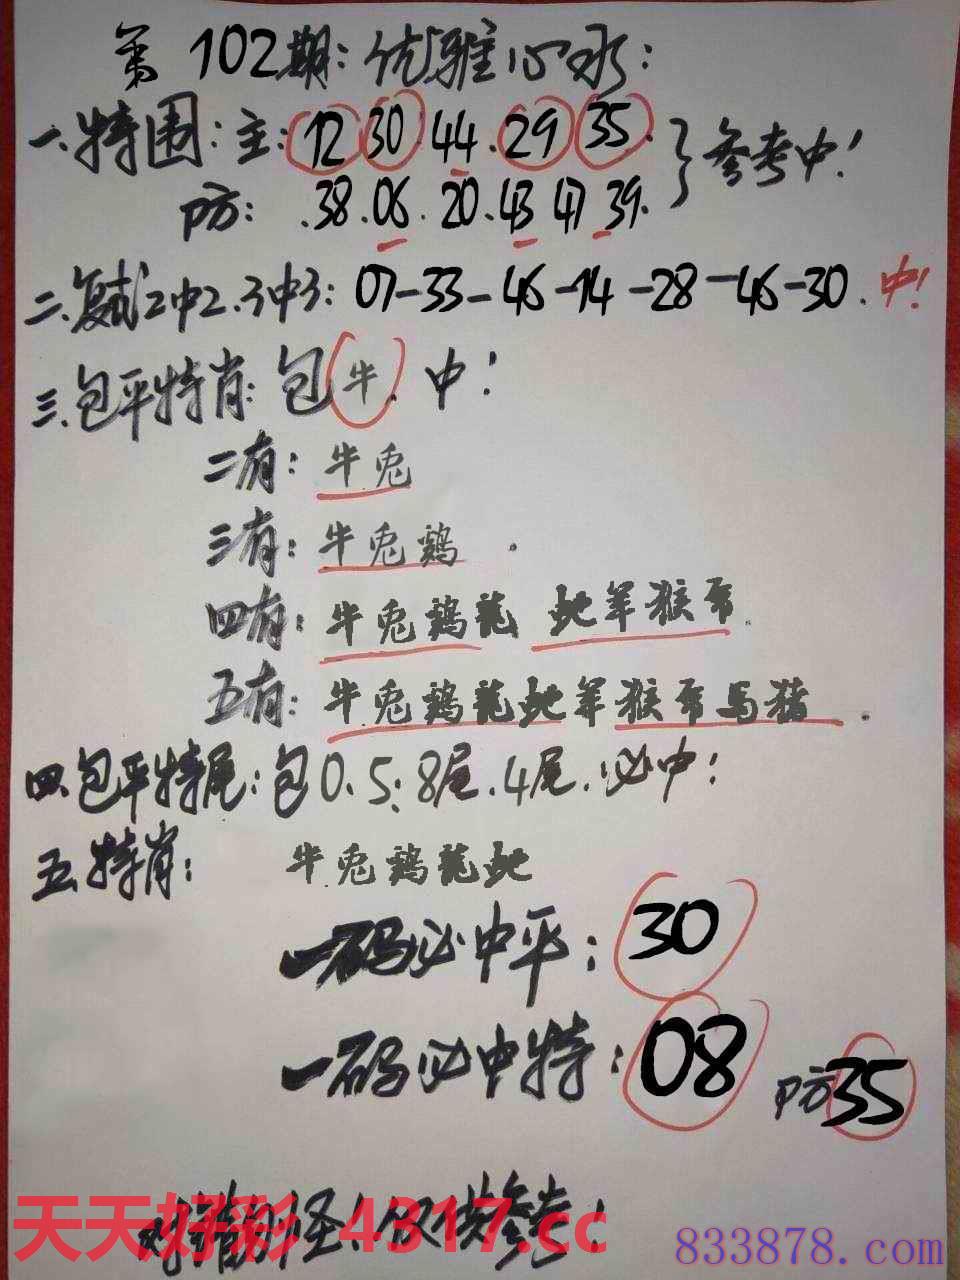 第102期:优雅心水:
一.特围:主:12 30 44.29 35.}参考中!
防:.38.06.20.43 47 39.
二.复试2中2.3中3:07-33-46-14-28-46-30.中!
三.包平特肖:包牛.中!
二有:牛兔
三有:牛兔鸡.
四有:牛兔鸡龙 蛇羊猴
五有:牛兔鸡龙蛇羊猴 马猪.
四.包平特尾:包0.5:8尾.4尾.必中!
五.特肖: 牛兔鸡龙蛇
一码必中平:30
一码必中特:08 防35
对错别怪!仅供参考!
天天好彩 4317.cc
833878.com